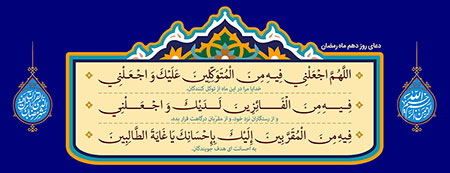 دعای روز دهم ماه رمضان
اللَّهُمَّ اجْعَلْنِي فِيهِ مِنَ الْمُتَوَكِّلِينَ عَلَيْكَ وَ اجْعَلْنِي
خدایا مرا در این ماه از توکل کنندگان،
فِيهِ مِنَ الْفَائِزِينَ لَدَيْكَ وَ اجْعَلْنِي
و از رستگاران نزد خود، و از مقربان درگاهت قرار بده،
فِيهِ مِنَ الْمُقَرَّبِينَ إِلَيْكَ بِإِحْسَانِكَ يَا غَايَةَ الطَّالِبِينَ
به احسانت ای هدف جویندگان.